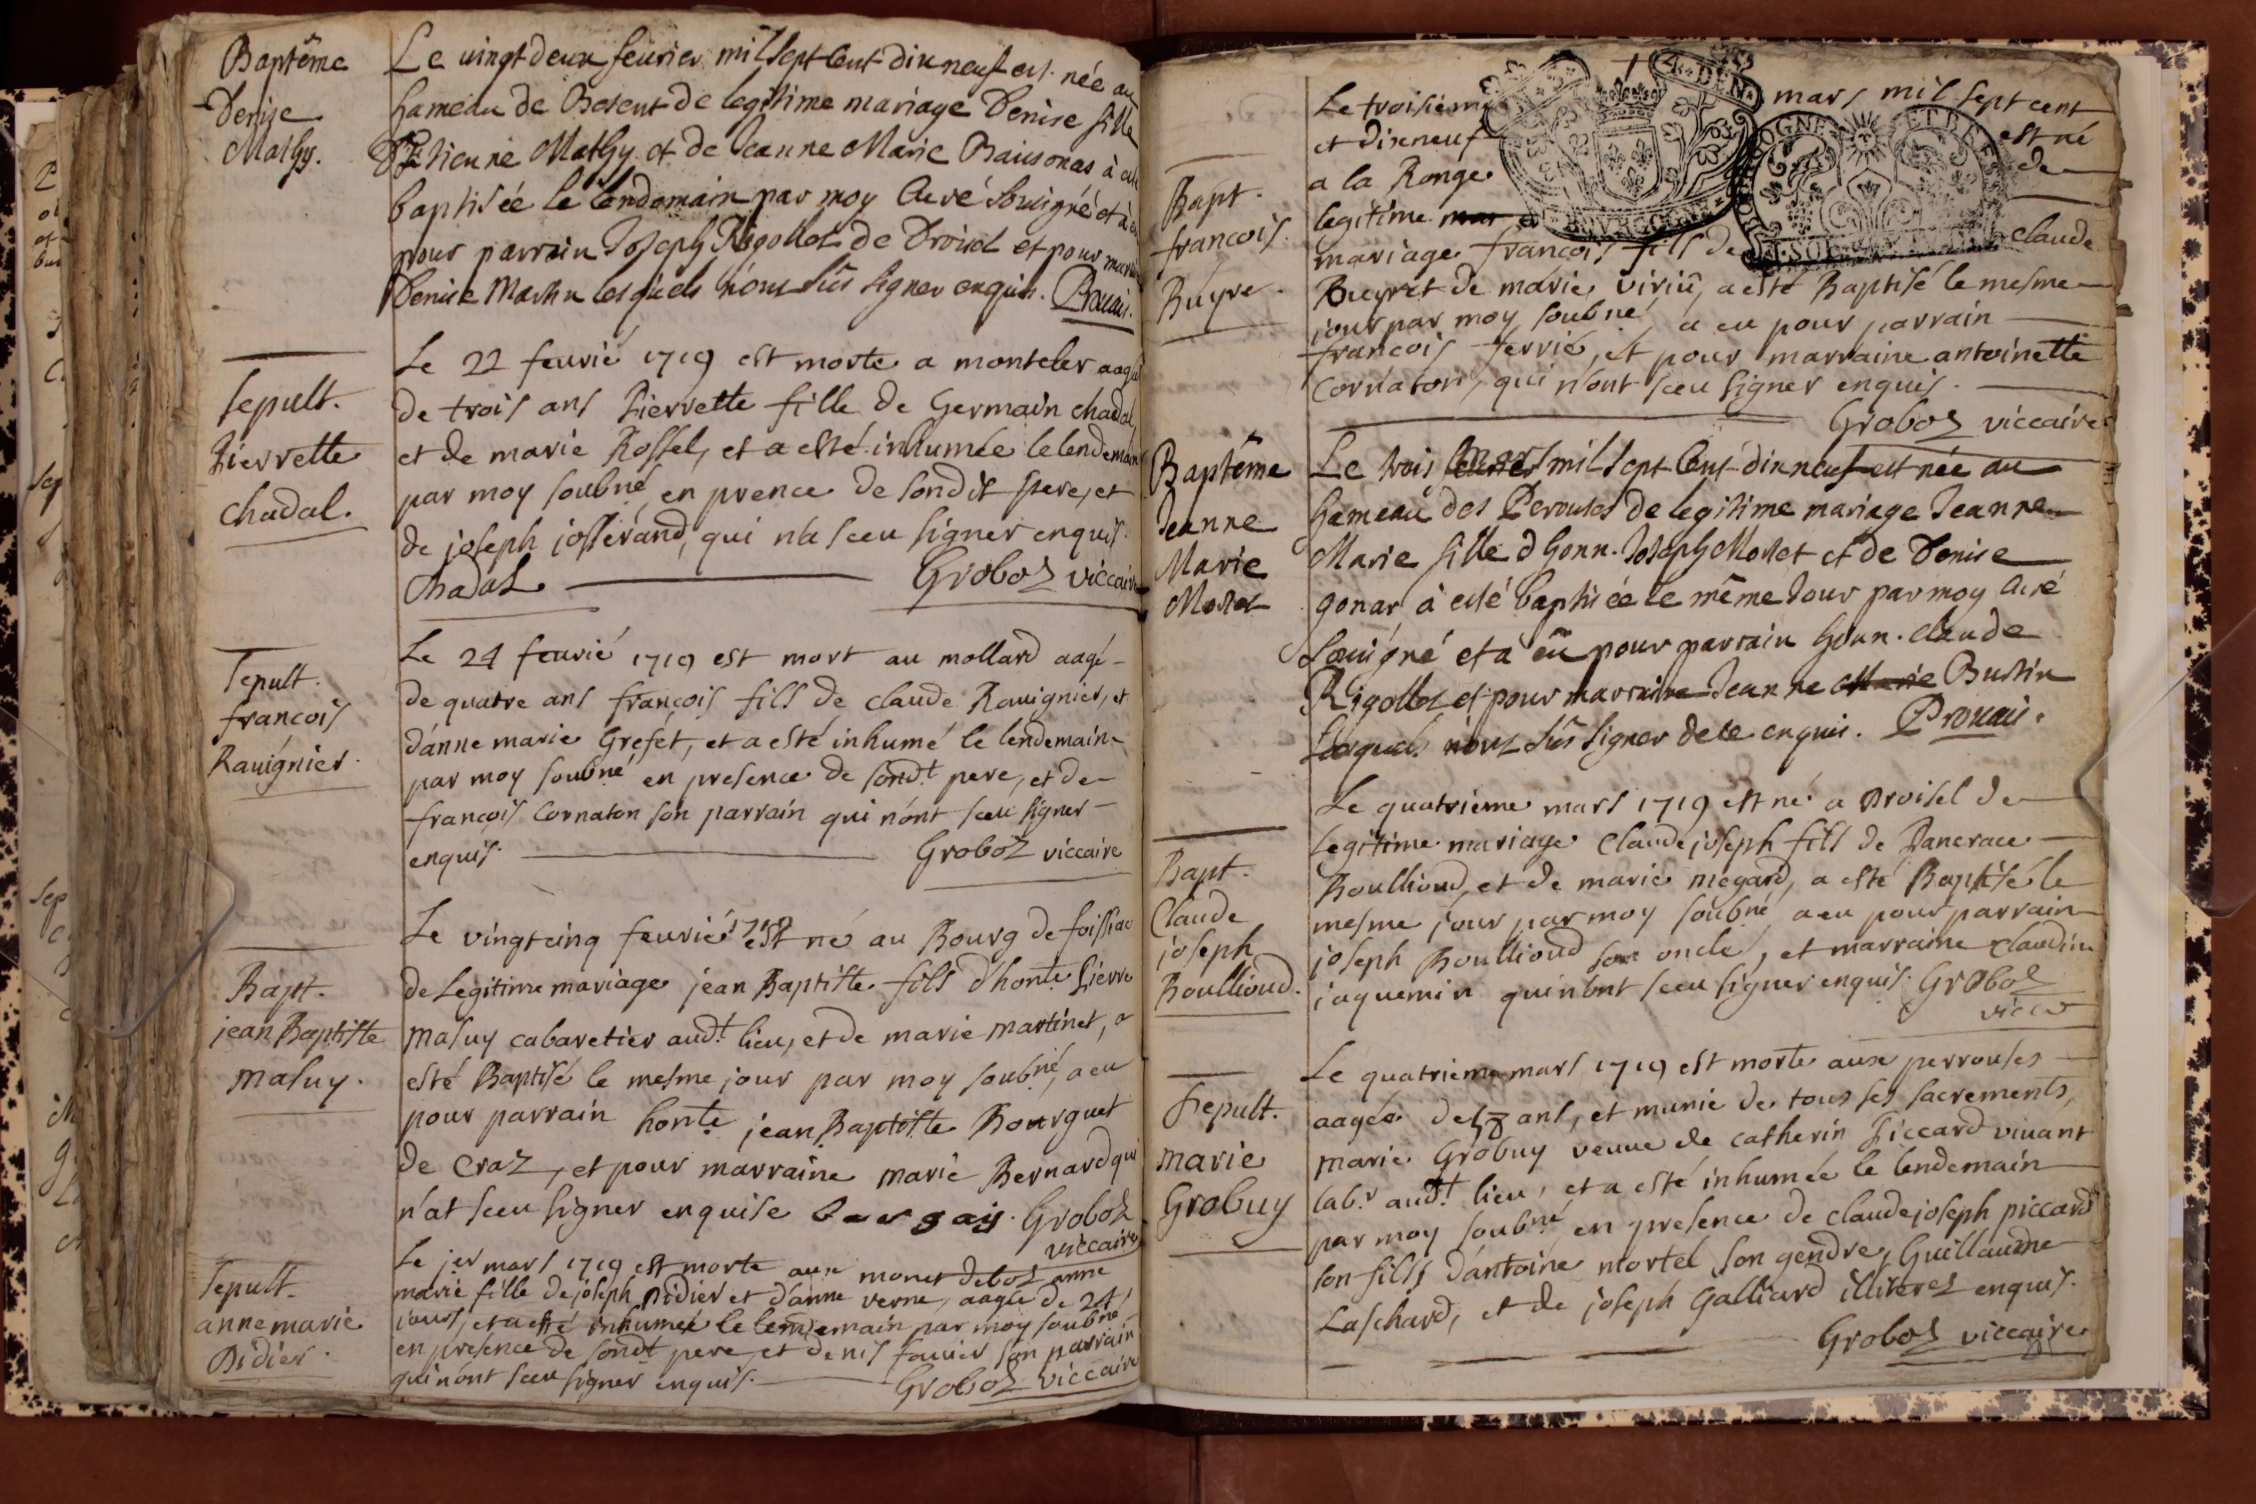 Baptême
Denise
Mathy.
Le vingt deux feurier mil sept cent dix neuf est née au
hameau de Beseut de legitime mariage Denise fille
d'Etienne Mathy et de Jeanne Marie à
baptisée le lendemain par moy Curé souigné et à
pour parrain Joseph Rigollet de Droisel et pour
Denise Martin lesquels n'ont sûs signer enquis.
Sepult.
Pierrette
chadal.
Le 22 feurié 1719 est morte a monteler aagée
de trois ans Pierrette fille de Germain chadal
et de marie Rossel, et a esté inhumée le lendemain
par moy soubné en prence de sondit pere, et
de joseph josserand, qui n'a sceu signer enquis.
Chadal Groboz viccaire
Sepult.
françois
Rauignier.
Le 24 feurié 1719 est mort au mollard aagé
de quatre ans françois fils de claude Rauignier, et
d'anne marie Grefet, et a esté inhumé le lendemain
par moy soubné en presence de sondt pere, et de
françois Cornaton son parrain qui n'ont sceu signer
enquis. Groboz viccaire
Bapt.
jean Baptiste
masuy.
Le vingtcinq feurié est né au Bourg de foissiac
de Legitime mariage jean Baptiste fils d'honte Pierre
masuy cabaretier audt lieu, et de marie martinet, a
esté Baptisé le mesme jour par moy soubné, a eu
pour parrain honte jean Baptiste Bourguet
de Craz, et pour marraine marie Bernard qui
n'at sceu signer enquise Groboz
viccaire
Sepult.
anne marie
Didier.
Le jer mars 1719 est morte aux anne
marie fille de joseph Didier et d'anne verne, aagée de 24
jours, et a esté inhumée le lendemain par moy soubné
en presence de sondt pere, et denis son parrain
qui n'ont sceu signer enquis. Groboz viccaire
Bapt.
francois
Buyre.
4. DEN.
Le troisieme mars mil sept cent
et dixneuf est né
a la Ronge de
legitime
mariage françois fils de claude
Buyre et de marie viriû, a esté Baptisé le mesme
jour par moy soubné, a eu pour parrain
francois ferrié, et pour marraine antoinette
Cornaton, qui n'ont sceu signer enquis.
Groboz viccaire
Baptême
Jeanne
Marie
Le trois mil sept cent dix neuf est née au
hameau des Perouses de legitime mariage Jeanne
Marie fille d'honn. Joseph et de Denise
gonar, à esté baptisée le même Jour par moy Curé
souigné et à eû pour parrain honn. Claude
Rigollet et pour marraine Jeanne Marie Bustin
Lesquels n'ont sûs signer de ce enquis.
Bapt.
Claude
joseph
Boullioud.
Le quatrieme mars 1719 est né a Droisel de
legitime mariage Claude joseph fils de Pancrace
Boullioud, et de marie megard, a esté Baptisé le
mesme jour par moy soubné a eu pour parrain
joseph Boullioud son oncle, et marraine claudine
jaquemin qui n'ont sceu signer enquis. Groboz
vicce
Sepult.
marie
Grobuy
Le quatrieme mars 1719 est morte aux perrouses
aagée de ans, et munie de tous ses sacrements,
marie Grobuy veuue de catherin Piccard viuant
labr audt lieu, et a esté inhumée le lendemain
par moy soubné en presence de claude joseph piccard
son fils, d'antoine mortel son gendre, Guillaume
Laschard, et de joseph Galliard illiterez enquis.
Groboz viccaire